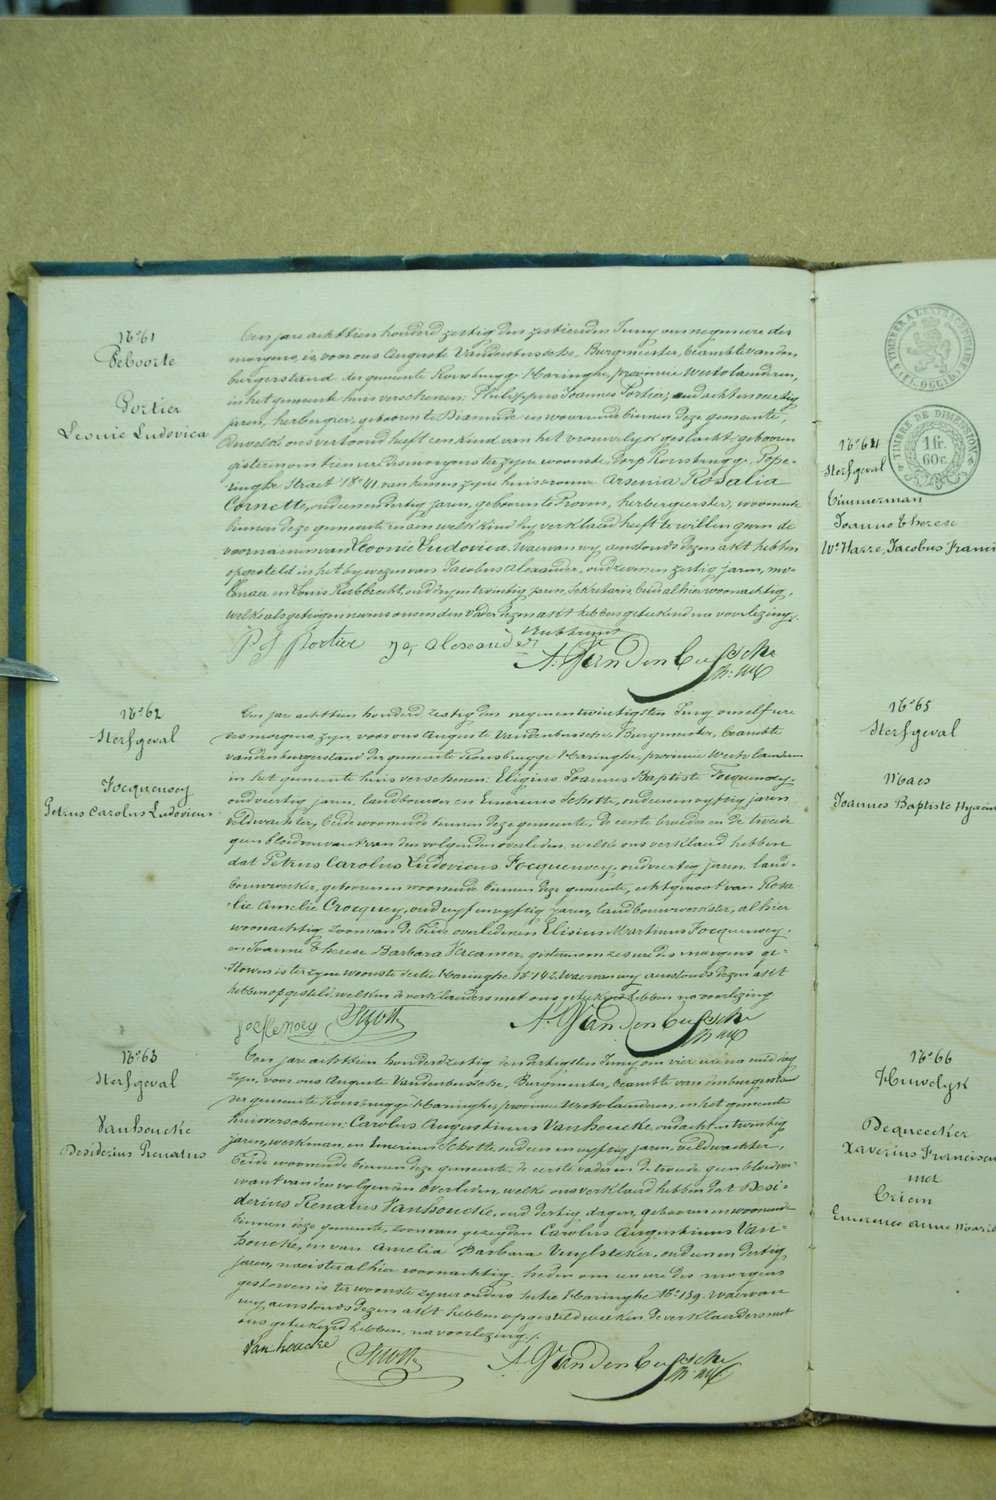 N° 61
Geboorte
Portier
Leonie Ludovica
Een jare achttien honderd zestig den zestienden Juny om negen ure des
morgens, is voor ons Auguste Vandenbussche, Burgmeester, beambte van den
burgerstand der gemeente Rousbrugge Haringhe, provincie Westvlaendren,
in het gemeente huis verschenen: Philippus Joannes Portier, oud acht en veertig
jaren, herbergier, geboren te en woonende binnen deze gemeente,
dewelke ons vertoond heeft een kind van het vrouwelyk geslacht, geboren
gisteren om tien ure des morgens ter zyne woonste, dorp Rousbrugge, Pope-
ringhe Straet N° 41, van hem en zyne huisvrouw Arsenia Rosalia
Cornette, oud een en dertig jaren, geboren te Proven, herbergierster, woonende
binnen deze gemeente en aen welk kind hy verklaerd heeft te willen geven de
voornamen van Leonie Ludovica. Waervan wy aenstonds dezen akt hebben
opgesteld in het bywezen van Jacobus Alexander, oud zeven en zestig jaren,
en Louis Rubbrecht, oud dry en twintig jaren, Sekretaris, beide alhier woonachtig,
welke als getuigen nevens ons en den Vader dezen akt hebben geteekend na voorlezing.
P J Portier Ja Alexander Rubbrecht
A. VandenBussche
N° 62
Sterfgeval
Jocquenoey
Petrus Carolus Ludovicus
Een jare achttien honderd zestig den negenentwintigsten Juny om elf ure
des morgens, zyn voor ons Auguste Vandenbussche, Burgmeester, beambte
van den burgerstand der gemeente Rousbrugge Haringhe, provincie Westvlaendren
in het gemeente huis verschenen: Eligius Joannes Baptiste Jocquenoey,
oud veertig jaren, landbouwer en Emerinus Schotte, oud een en vyftig jaren
veldwachter, beide woonende binnen deze gemeente, de eerste broeder en de tweede
geen bloedverwant van den volgenden overleden, welke ons verklaerd hebben
dat Petrus Carolus Ludovicus Jocquenoey, oud veertig jaren, land-
bouwwerker, geboren en woonende binnen deze gemeente, echtgenoot van Rosa-
lie Amelie Crocquey, oud vyf en vyftig jaren, landbouwwerkster, alhier
woonachtig, zoon van de beide overledenen Elisius Martinus Jocquenoey,
en Joanne Therese Barbara gisteren om zes ure des morgens ge-
storven is ter zyne woonste sectie Haringhe N° 142. Waervan wy aenstonds dezen akt
hebben opgesteld, welken de verklaerders met ons geteekend hebben na voorlezing
jocquenoey Schotte A. VandenBussche
N° 63
Sterfgeval
Vanhoucke
Desiderius Renatus
Een jare achttien honderd zestig den dertigsten Juny om vier ure na middag
zyn, voor ons Auguste Vandenbussche, Burgmeester, beambte van den burgerstand
der gemeente Rousbrugge Haringhe, provincie Westvlaendren, in het gemeente
huis verschenen: Carolus Augustinus Vanhoucke, oud acht en twintig
jaren, werkman, en Emerinus Schotte, oud een en vyftig jaren, veldwachter,
beide woonende binnen deze gemeente, de eerste vader en de tweede geen bloedver-
want van den volgenden overleden, welke ons verklaerd hebben dat Desi-
derius Renatus Vanhoucke, oud dertig dagen, geboren en woonende
binnen deze gemeente, zoon van gezegden Carolus Augustinus Van-
houcke, en van Amelia Barbara Vuylsteker, oud een en dertig
jaren, naeister alhier woonachtig, heden om een ure des morgens
gestorven is ter woonste zyner ouders sectie Haringhe N° 139. Waervan
wy aenstonds dezen akt hebben opgesteld welken de verklaerders met
ons geteekend hebben, na voorlezing.
Vanhoucke Schotte A. VandenBussche
TIMBRE DE DIMENSION
1 fr.
60 c.
N° 64
Sterfgeval
Timmerman
Joanne Therese
We Harre, Jacobus Franci
N° 65
Sterfgeval
Maes
Joannes Baptiste Hyacin
N° 66
Huwelyk
Dequecker
Xaverius Franciscus
met
Emerence Anne